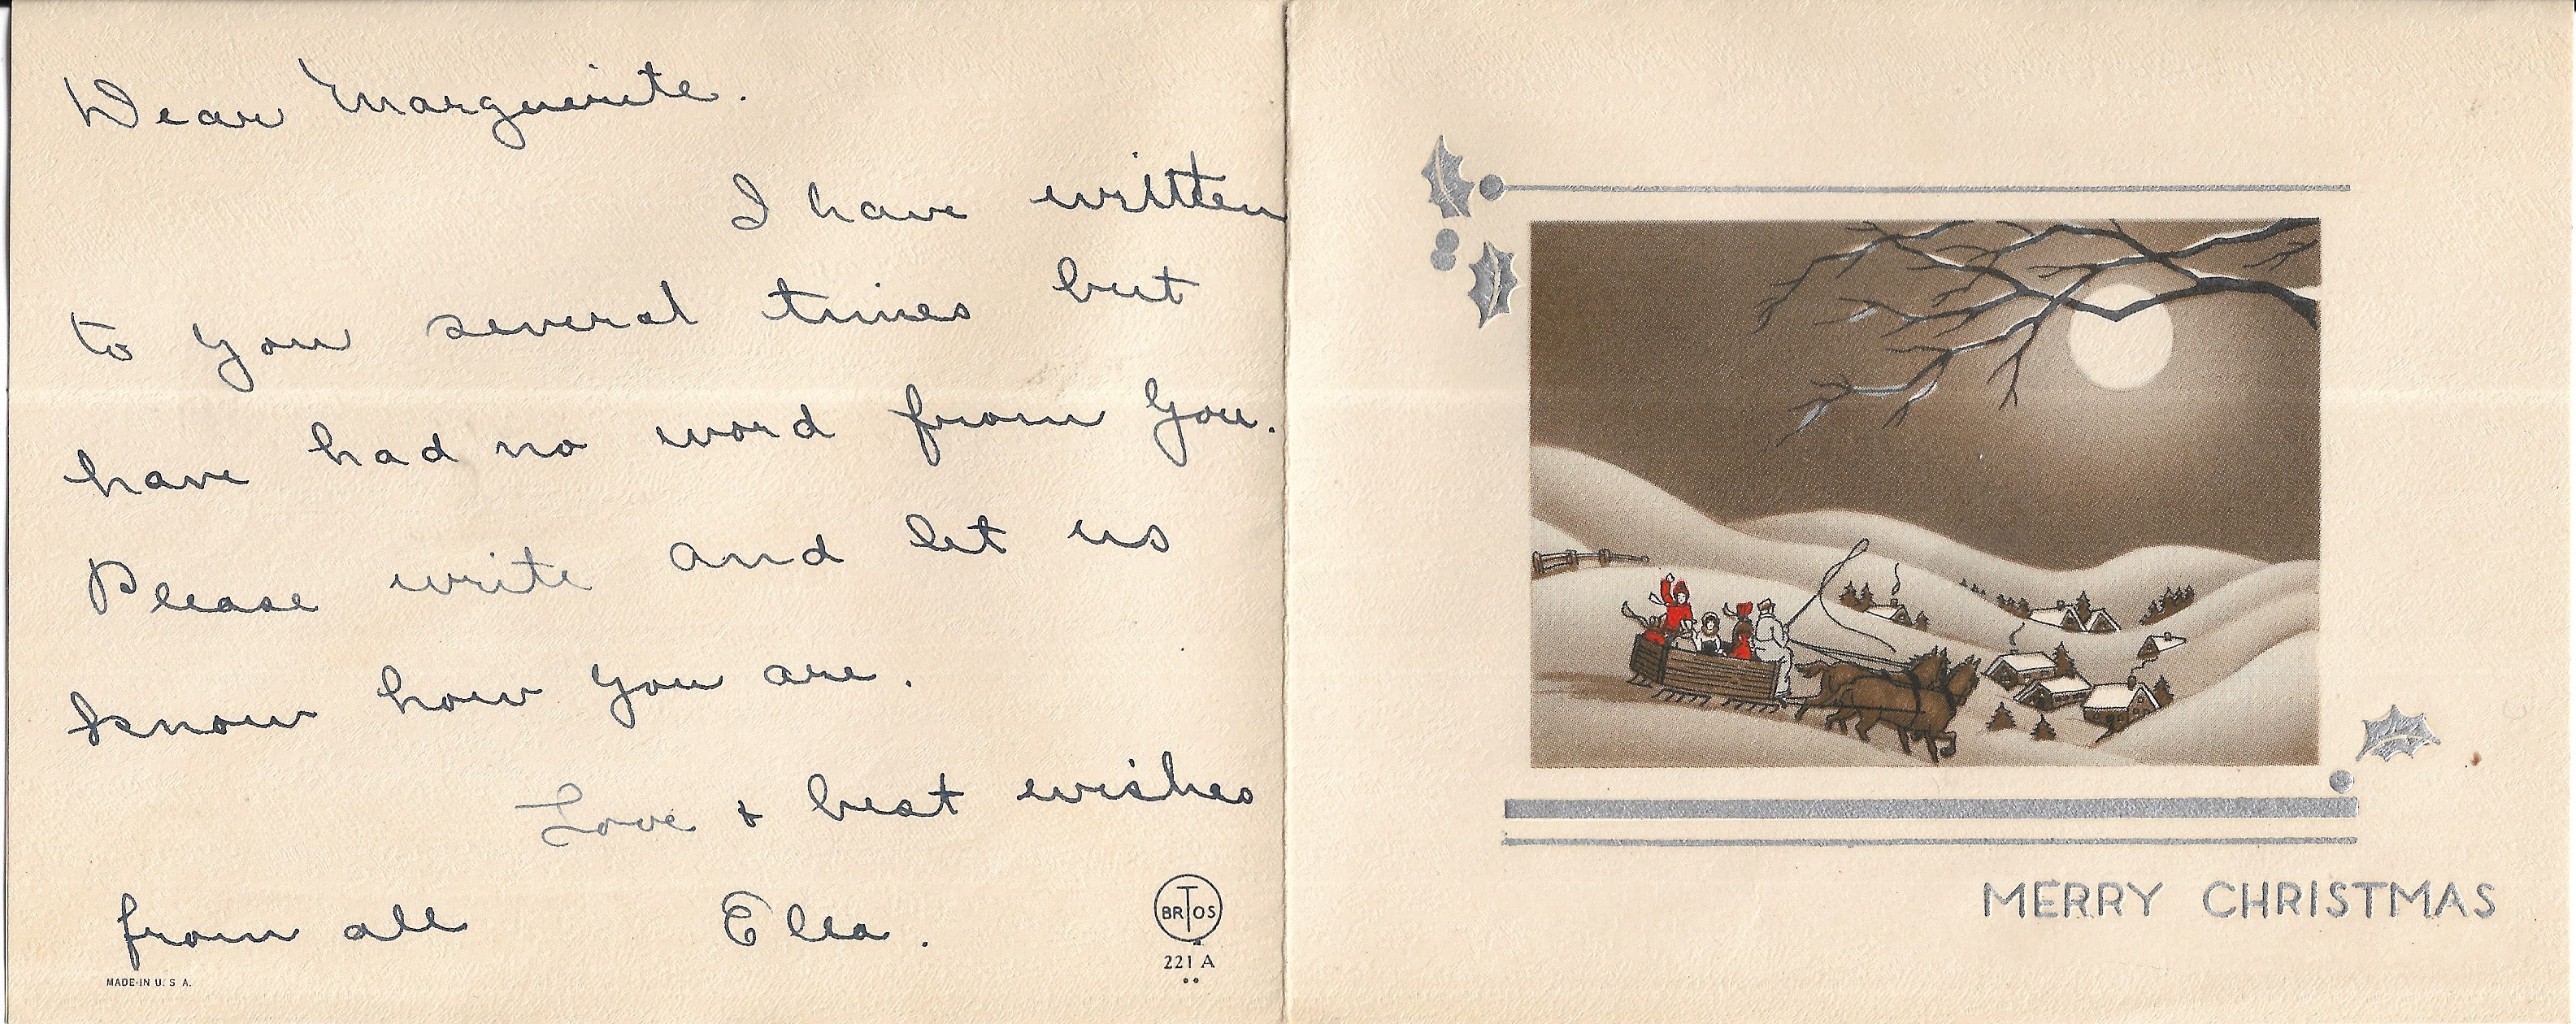 Dear Marguerite.
I have written
to you several times but
have had no word from you.
Please write and let us
know how you are.
Love & best wishes
from all Ella.
MADE IN U. S. A.
BR T OS
221 A
MERRY CHRISTMAS